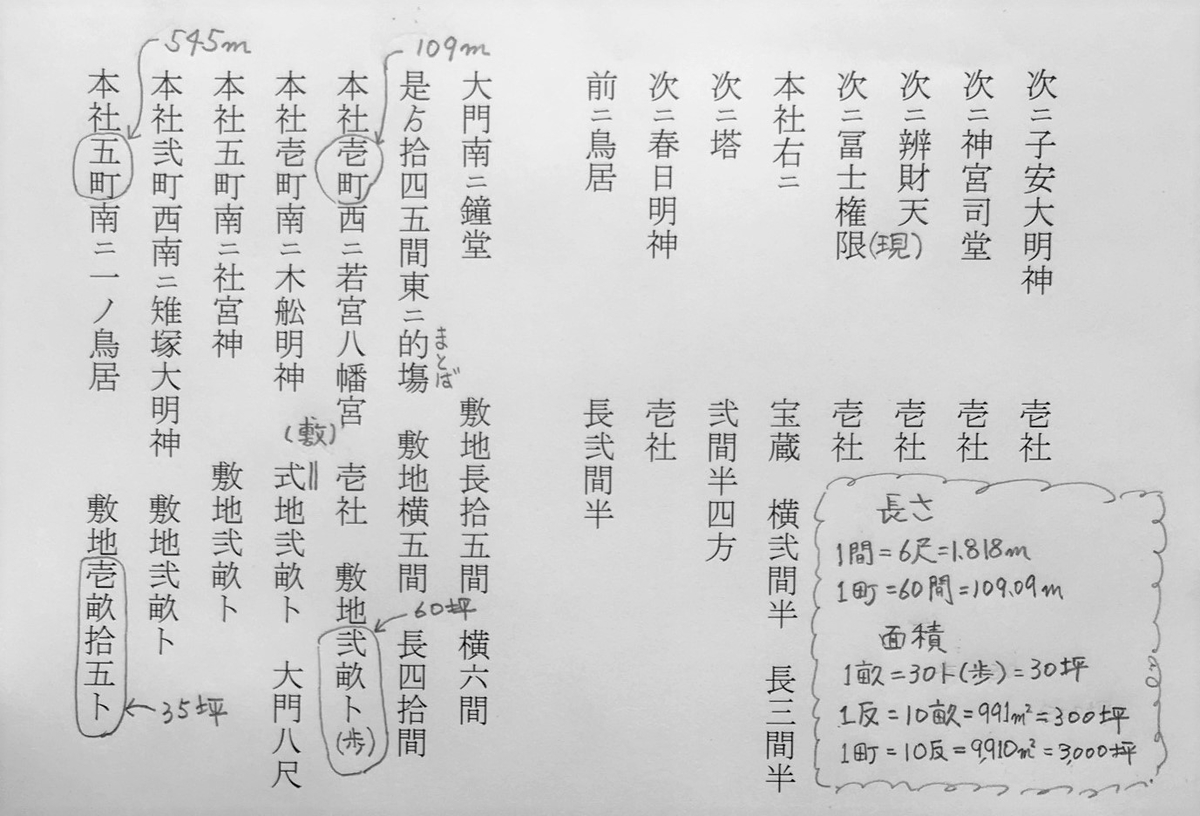 次ニ子安大明神　壱社
次ニ神宮司堂　壱社
次ニ辨財天　壱社
次ニ冨士権限(現)　壱社
本社右ニ　宝蔵　横弐間半　長三間半
次ニ塔　弐間半四方
次ニ春日明神　壱社
前ニ鳥居　長弐間半
大門南ニ鐘堂　敷地長拾五間　横六間
是ゟ拾四五間東ニ的塲　敷地横五間　長四拾間
まとば
本社壱町西ニ若宮八幡宮　壱社　敷地弐畝卜(歩)
109m
60坪
本社壱町南ニ木舩明神　式地弐畝卜　大門八尺
(敷)
本社五町南ニ社宮神　敷地弐畝卜
本社弐町西南ニ雉塚大明神　敷地弐畝卜
本社五町南ニ一ノ鳥居　敷地壱畝拾五卜
545m
35坪
長さ
1間=6尺=1.818m
1町=60間=109.09m
面積
1畝=30卜(歩)=30坪
1反=10畝=991m²=300坪
1町=10反=9,910m²=3,000坪